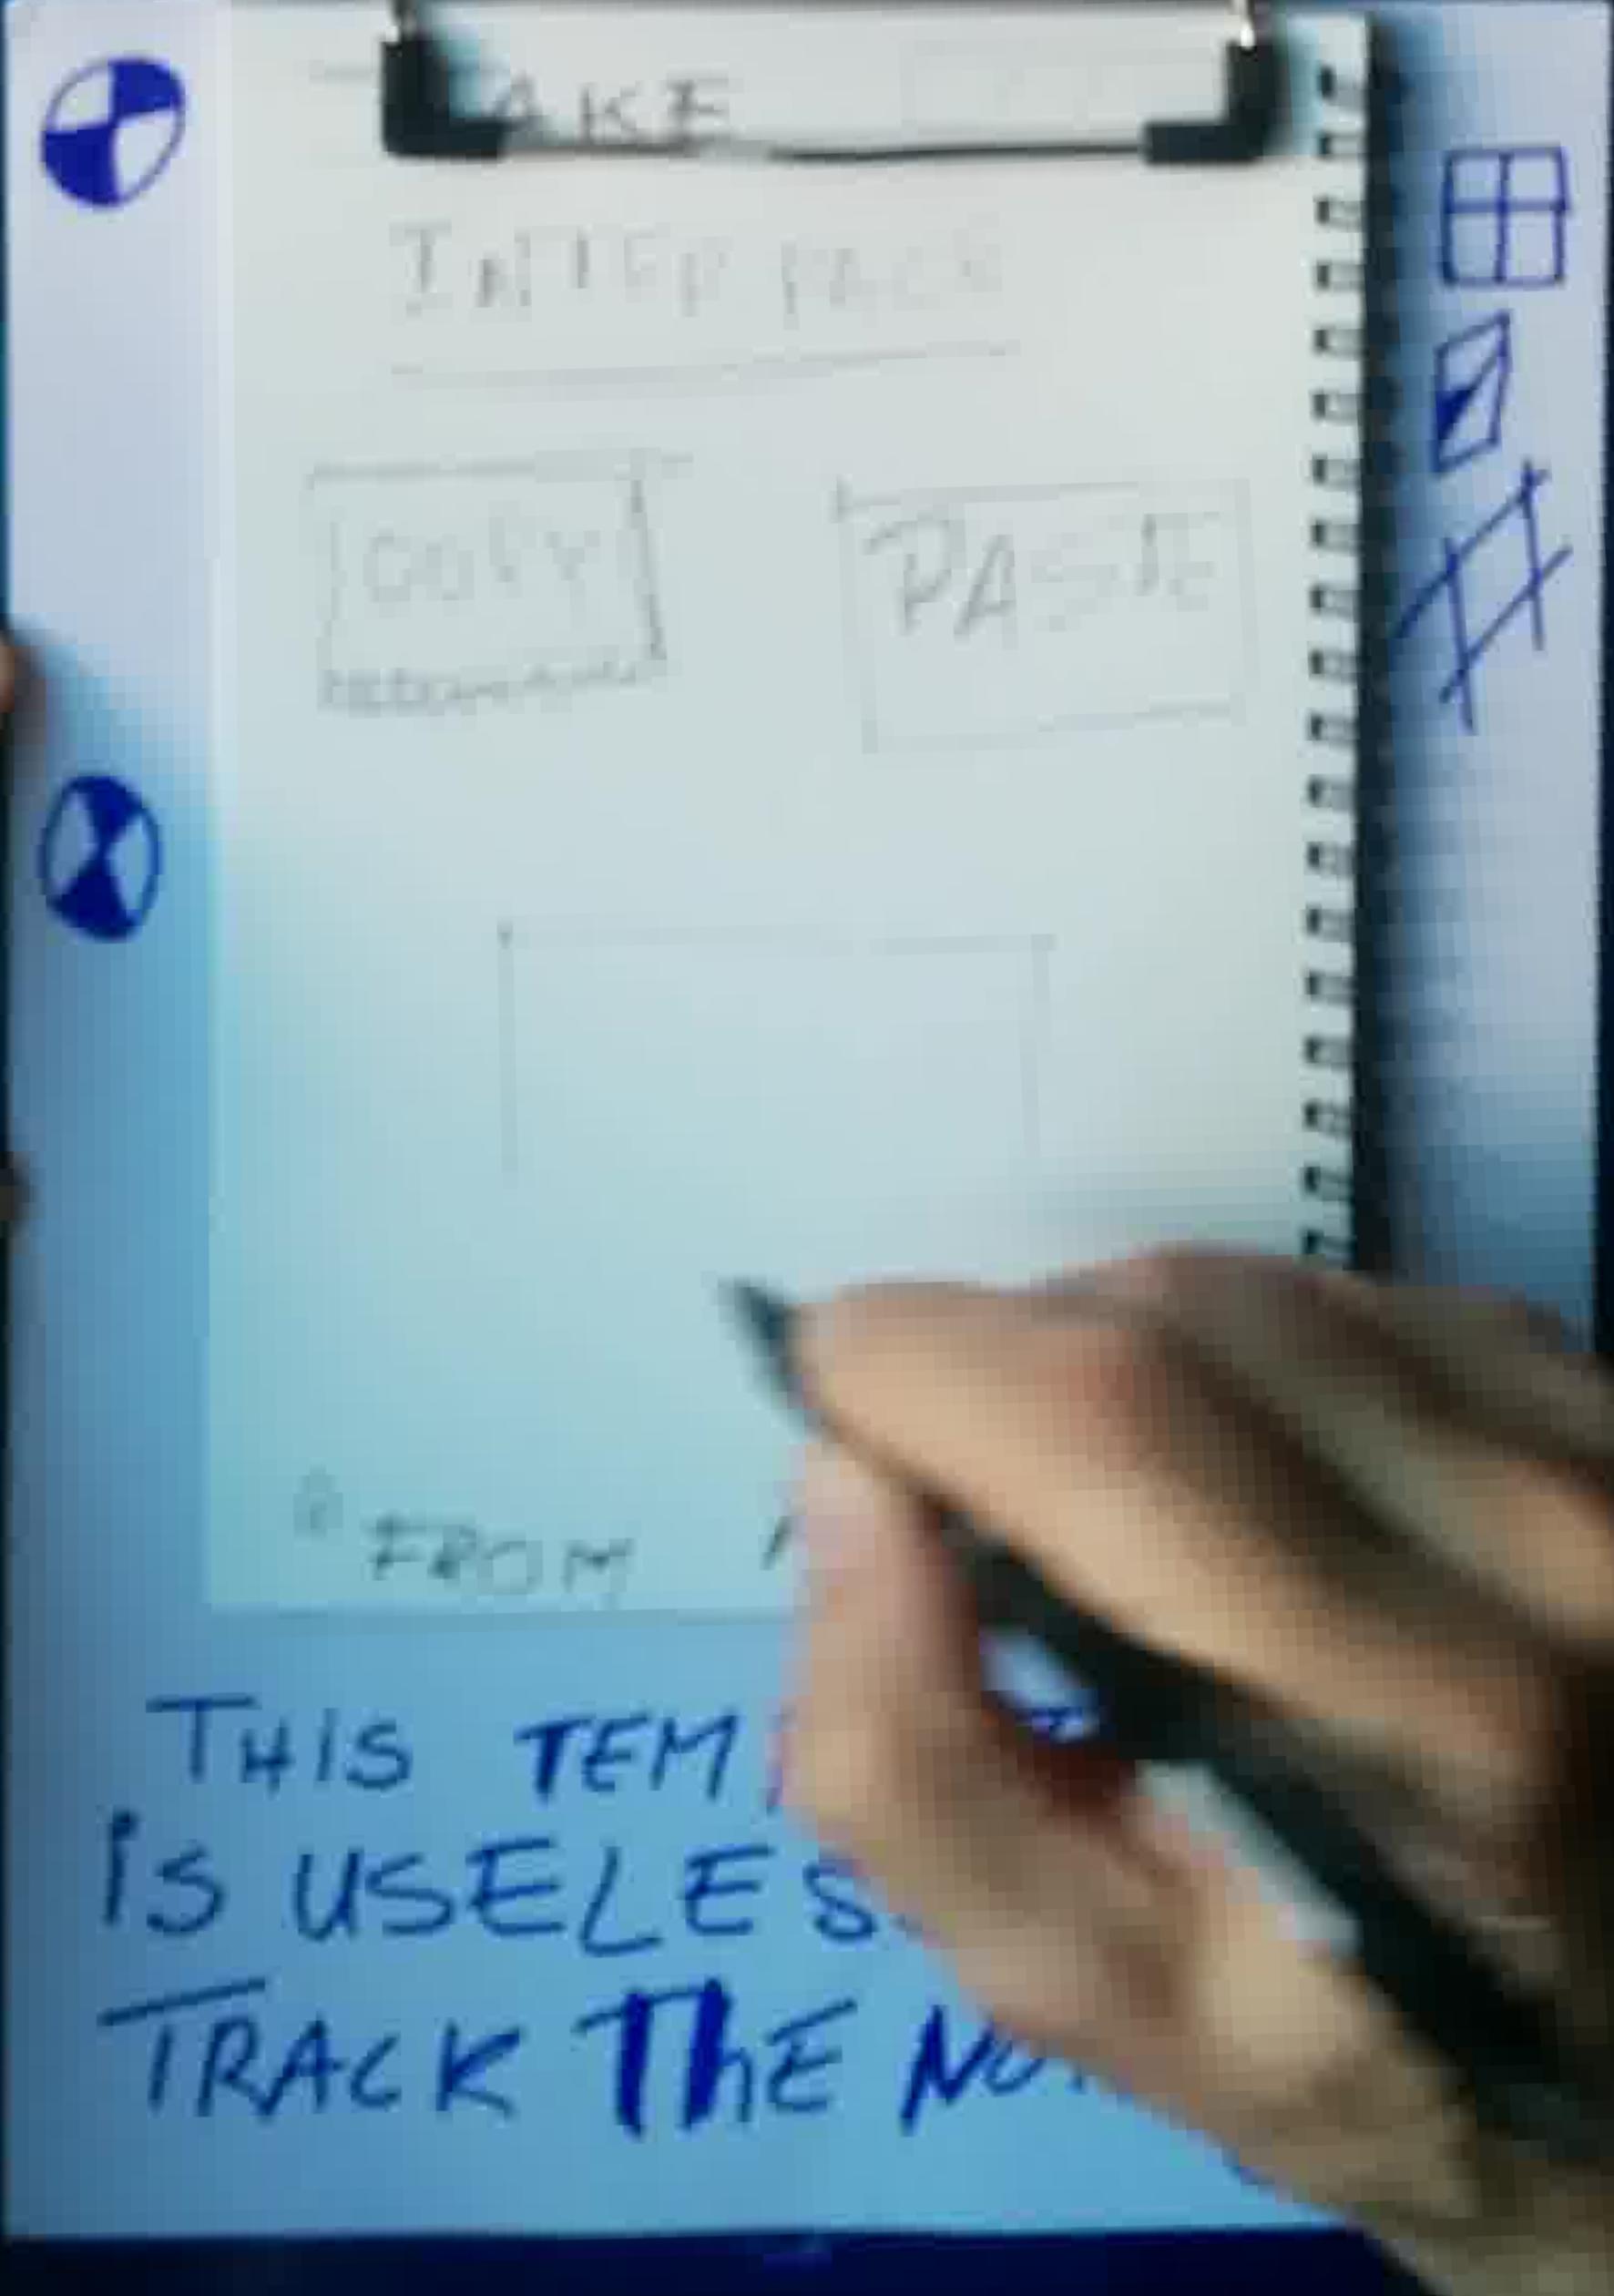 AKE
INTERFACE
COPY PASTE
FROM
THIS TEMP
IS USELES
TRACK ThE NO